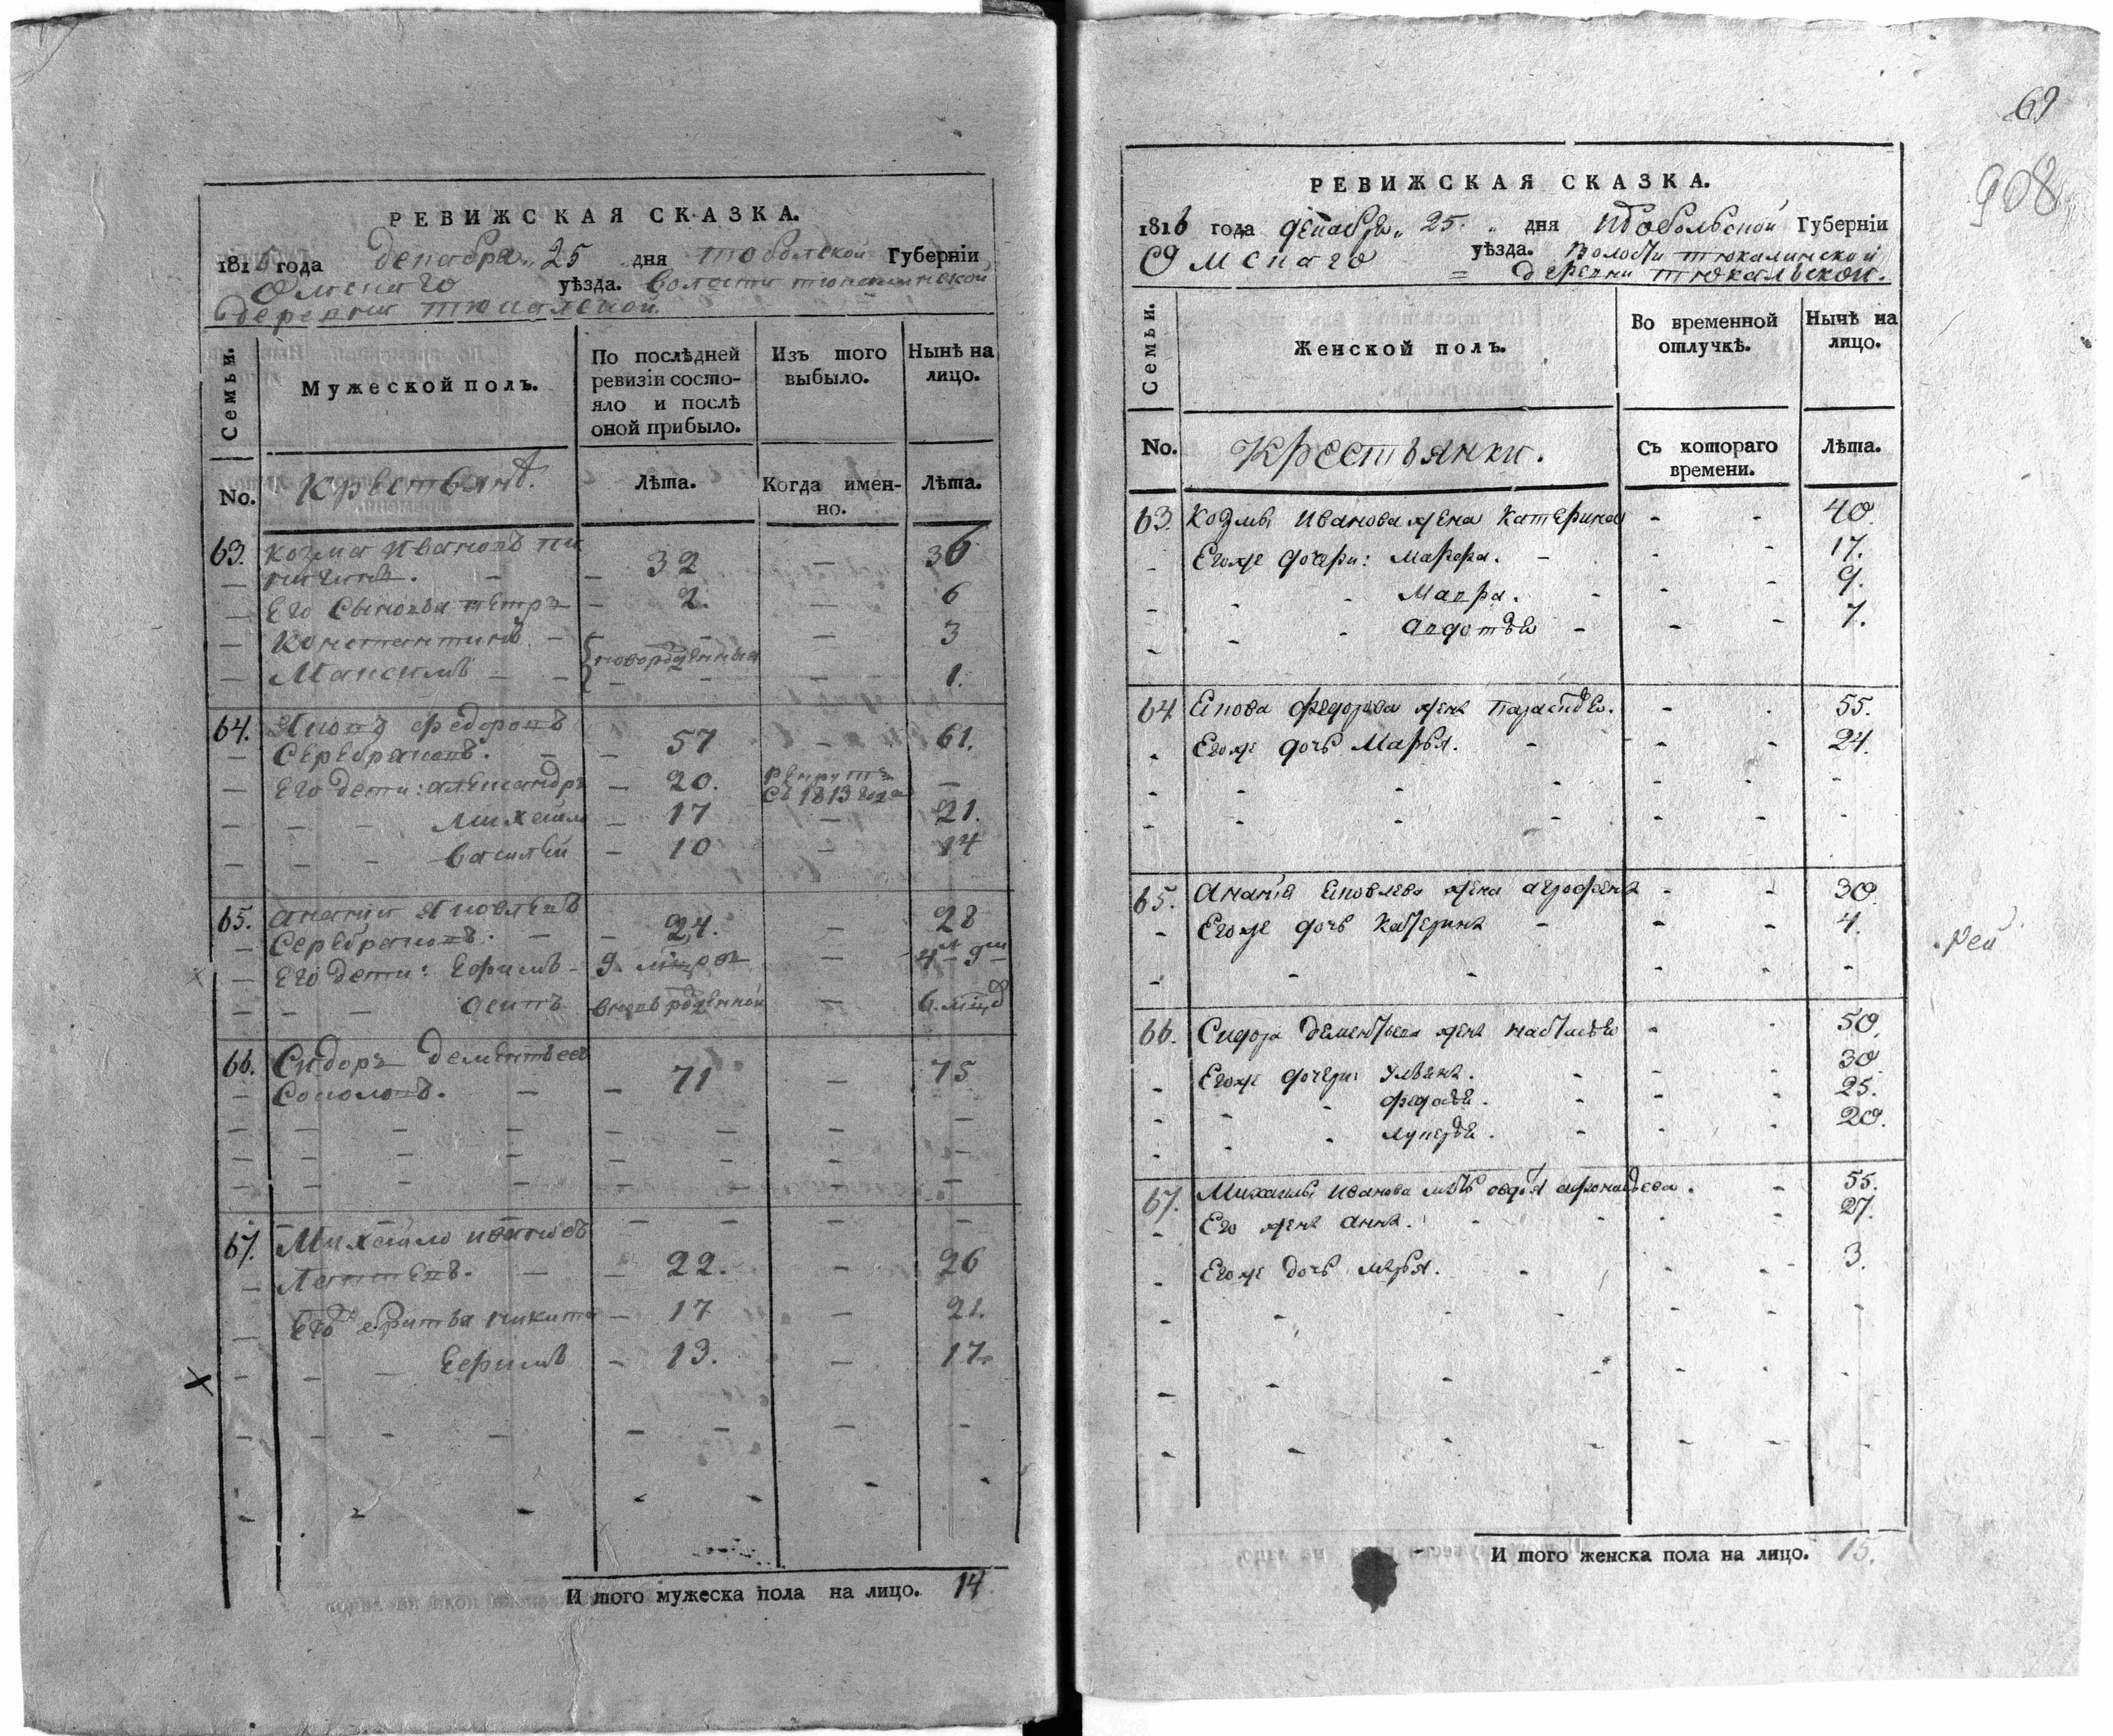 РЕВИЖСКАЯ СКАЗКА.
1816 года декабря 25 дня тобольской Губерніи
Омскаго уѣзда. волости тюкалинской
деревни тюкальской.
Семьи.
Мужеской полъ.
По послѣдней ревизіи состо-
яло и послѣ
оной прибыло.
Изъ того
выбыло.
Нынѣ на
лицо.
No.
Крестьянъ.
Лѣта.
Когда имен-
но.
Лѣта.
63. Козма Ивановъ 32 — 36
Его сыновья петръ — 2. — 6
Константинъ — — 3
новорожденныя
Максимъ — — 1.
64. Яковъ федоровъ
Серебряковъ. — 57 — 61.
Его дети: александръ — 20. рекрутъ
съ 1813 года —
михайло — 17 — 21.
василей — 10 — 14
65. ананий Яковлевъ
Серебряковъ. — 24. — 28
Его дети: Ефимъ — 9. — 4
осипъ — 6.
66. Сидоръ дементьевъ
Соколовъ. — 71 — 75
67. Михайло ивановъ
Лаптевъ. — 22. — 26
Его братья никита — 17 — 21.
Ефимъ — 13. — 17.
И того мужеска пола на лицо. 14
69
908
РЕВИЖСКАЯ СКАЗКА.
1816 года декабря 25. дня тобольской Губерніи
Омскаго уѣзда. волости тюкалинской
деревни тюкальской.
Семьи.
Женской полъ.
Во временной
отлучкѣ.
Нынѣ на
лицо.
No.
Крестьянки.
Съ котораго
времени.
Лѣта.
63. Козмы Иванова жена Катерина - - 40.
Егоже дочери: Марфа. - - 17.
Мавра. - - 9.
авдотья - - 7.
64 Якова федорова жена Параскева. - - 55.
Егоже дочь Марья. - - 24.
65. Ананія Яковлева жена аграфена - - 30.
Егоже дочь Катерина - - 4.
66. Сидора дементьева жена настасья - - 50.
Егоже дочери: Ульяна. - - 30.
федосья. - - 25.
лукерья. - - 20.
67. Михаилы Иванова мать авдотья - 55.
Его жена анна. - - 27.
Егоже дочь марья. - - 3.
И того женска пола на лицо. 15.